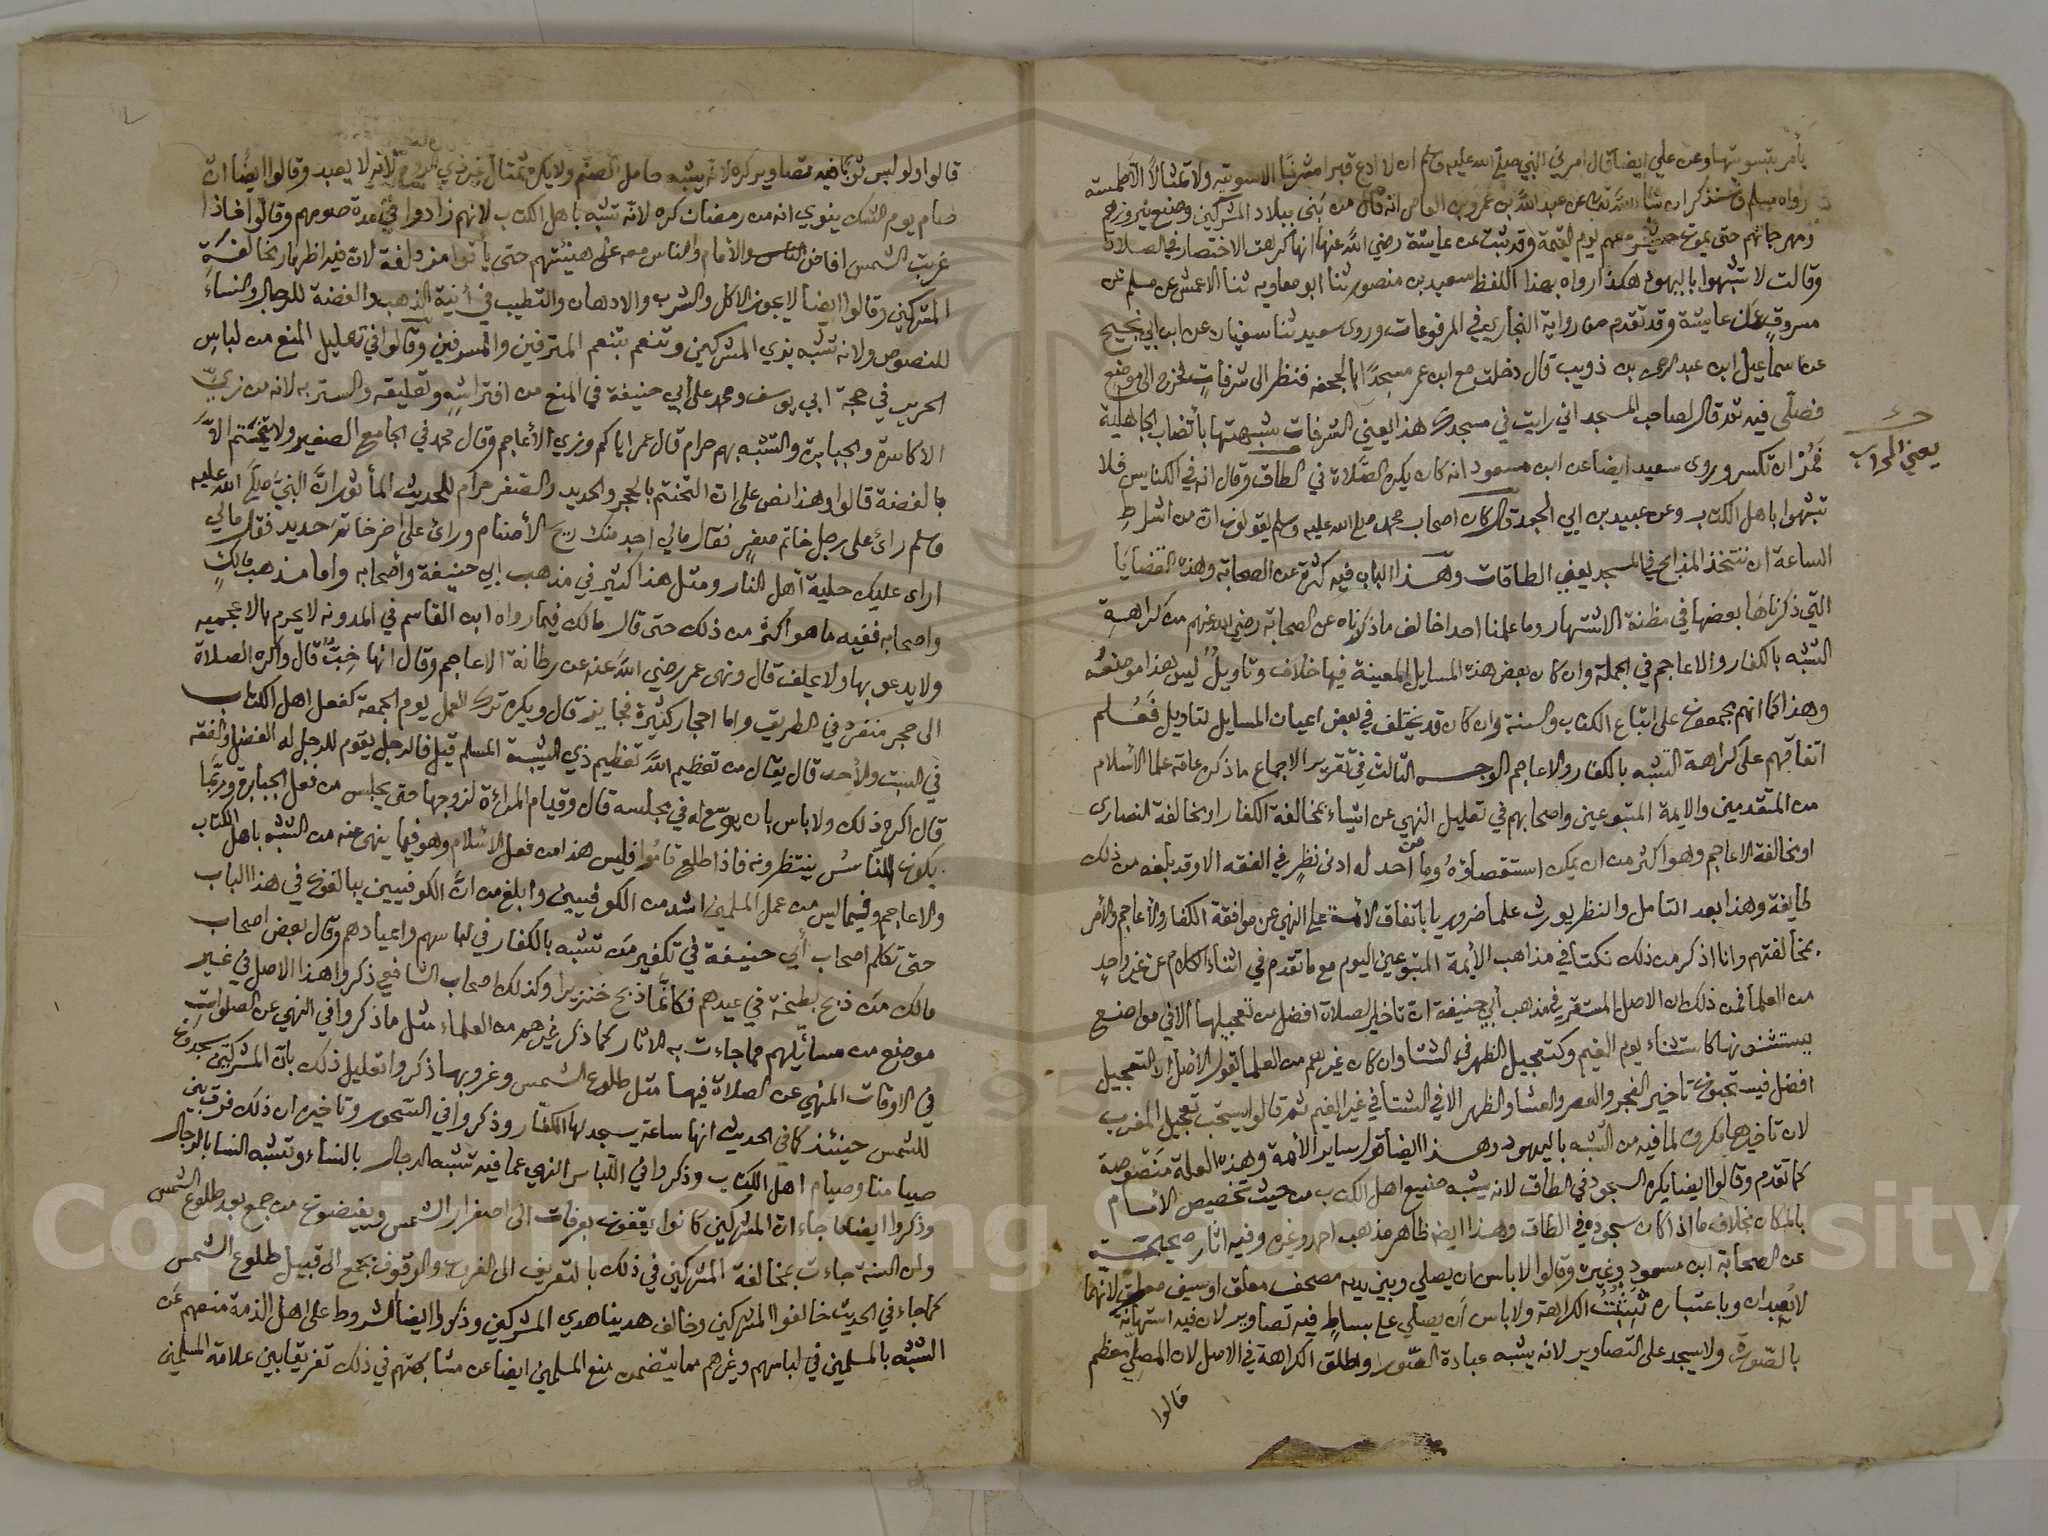 يأمر بتسويتها وعن علي ايضا قال امرني النبي صلى الله عليه وسلم ان لا ادع قبرا مشرفا الا سويته ولا تمثالا الا طمسته
رواه مسلم وسنذكر ان شاء الله تعالى عن عبد الله بن عمرو بن العاص انه قال من بنى ببلاد المشركين وصنع نيروزهم
ومهرجانهم حتى يموت حشر معهم يوم القيمة وقد ثبت عن عايشة رضي الله عنها انها كرهت الاختصار في الصلاة
وقالت لا تشبهوا باليهود هكذا رواه بهذا اللفظ سعيد بن منصور ثنا ابو معاويه ثنا الاعمش عن مسلم عن
مسروق عن عايشة وقد تقدم من رواية البخاري في المرفوعات وروى سعيد ثنا سفيان عن ابن ابي نجيح
عن اسماعيل ابن عبد الرحمن بن ذويب قال دخلت مع ابن عمر مسجدا بالجحفه فنظر الى شرفات فخرج الى موضع
فصلى فيه ثم قال لصاحب المسجد اني رايت في مسجدك هذا يعني الشرفات شبهتها بأنصاب الجاهلية
فمر ان تكسر وروى سعيد ايضا عن ابن مسعود انه كان يكره الصلاة في الطاق وقال انه في الكنايس فلا
يعني المحراب
تشبهوا باهل الكتاب وعن عبيد بن ابي الجعد قال كان اصحاب محمد صلى الله عليه وسلم يقولون ان من اشراط
الساعة ان تتخذ المذابح في المسجد يعني الطاقات وهذا الباب فيه كثرة عن الصحابة وهذه القضايا
التي ذكرناها بعضها في مظنة الاشتهار وما علمنا احدا خالف ما ذكرناه عن الصحابة رضي الله عنهم من كراهة
التشبه بالكفار والاعاجم في الجملة وان كان بعض هذه المسايل المعينة فيها خلاف وتاويل ليس هذا موضعه
وهذا كما انهم مجمعون على اتباع الكتاب والسنة وان كان قد يختلف في بعض اعيان المسايل لتاويل فعلم
اتفاقهم على كراهة التشبه بالكفار والاعاجم الوجه الثالث في تقرير الاجماع ما ذكره عامة علما الاسلام
من المتقدمين والايمة المتبوعين واصحابهم في تعليل النهي عن اشياء بمخالفة الكفار او مخالفة النصارى
او مخالفة الاعاجم وهو اكثر من ان يمكن استقصاؤه وما من احد له ادنى نظر في الفقه الا وقد بلغه من ذلك
طايفة وهذا بعد التامل والنظر يورث علما ضروريا باتفاق الائمة على النهي عن موافقة الكفار والاعاجم والامر
بمخالفتهم وانا اذكر من ذلك نكتا في مذاهب الايمة المتبوعين اليوم مع ما تقدم في اثناء الكلام عن غير واحد
من العلما فمن ذلك ان الاصل المستقر في مذهب ابي حنيفة ان تاخير الصلاة افضل من تعجيلها الا في مواضع
يستثنونها كاستثناء يوم الغيم وكتعجيل الظهر في الشتا وان كان غيرهم من العلما يقول الاصل ان التعجيل
افضل فيستحبون تاخير الفجر والعصر والعشا والظهر الا في الشتا في غير الغيم ثم قالوا يستحب تعجيل المغرب
لان تاخيرها مكروه لما فيه من التشبه باليهود وهذا ايضا قول ساير الائمة وهذه العلة منصوصة
كما تقدم وقالوا ايضا يكره السجود في الطاق لانه يشبه صنيع اهل الكتاب من حيث تخصيص الامام
بالمكان بخلاف ما اذا كان سجوده في الطاق وهذا ايضا ظاهر مذهب احمد وغيره وفيه اثار صحيحة
عن الصحابة ابن مسعود وغيره وقالوا لا باس ان يصلي وبين يديه مصحف معلق او سيف معلق لانهما
لا يعبدان وباعتباره تثبت الكراهة ولا باس ان يصلي على بساط فيه تصاوير لان فيه استهانة
بالصورة ولا يسجد على التصاوير لانه يشبه عبادة الصور واطلق الكراهة في الاصل لان المصلي معظم
قالوا
قالوا ولو لبس ثوبا فيه تصاوير كره لانه يشبه حامل الصنم ولا يكره تمثال غير ذي الروح لانه لا يعبد وقالوا ايضا ان
صام يوم الشك ينوي انه من رمضان كره لانه تشبه باهل الكتاب لانهم زادوا في مدة صومهم وقالوا فاذا
غربت الشمس افاض الناس والامام والناس معه على هينتهم حتى يأتوا مزدلفة لان فيه اظهار مخالفة
المشركين وقالوا ايضا لا يجوز الاكل والشرب والادهان والتطيب في أنية الذهب والفضة للرجال والنساء
للنصوص ولانه تشبه بزي المشركين وتنعم بتنعم المترفين والمسرفين وقالوا في تعليل المنع من لباس
الحرير في حجة ابي يوسف ومحمد على ابي حنيفة في المنع من افتراشه وتعليقه والستر به لانه من زي
الاكاسرة والجبابرة والتشبه بهم حرام قال عمر اياكم وزي الاعاجم وقال محمد في الجامع الصغير ولا يتختم الا
بالفضة قالوا وهذا نص على ان التختم بالحجر والحديد والصفر حرام للحديث المأثور ان النبي صلى الله عليه
وسلم رأى على رجل خاتم صفر فقال مالي اجد منك ريح الأصنام ورأى على اخر خاتم حديد فقال مالي
ارى عليك حلية اهل النار ومثل هذا كثير في مذهب ابي حنيفة وأصحابه واما مذهب مالك
واصحابه ففيه ما هو اكثر من ذلك حتى قال مالك فيما رواه ابن القاسم في المدونه لا يحرم بالاعجميه
ولا يدعو بها ولا يحلف قال ونهى عمر رضي الله عنه عن رطانة الاعاجم وقال انها خب قال واكره الصلاة
الى حجر منفرد في الطريق واما احجار كثيرة فجايز قال ويكره ترك العمل يوم الجمعة كفعل اهل الكتاب
في السبت والأحد قال يقال من تعظيم الله تعظيم ذي الشيبة المسلم قيل فالرجل يقوم للرجل له الفضل والفقه
قال اكره ذلك ولا باس بان يوسع له في مجلسه قال وقيام المراة لزوجها حتى يجلس من فعل الجبابرة وربما
يكون الناس ينتظرونه فاذا طلع قاموا فليس هذا من فعل الاسلام وهو فيما ينهى عنه من التشبه باهل الكتاب
والاعاجم وفيما ليس من عمل المسلمين اشد من الكوفيين وابلغ من ان الكوفيين يبالغون في هذا الباب
حتى تكلم اصحاب أبي حنيفة في تكفير من تشبه بالكفار في لباسهم واعيادهم وقال بعض اصحاب
مالك من ذبح بطيخة في عيدهم فكانما ذبح خنزيرا وكذلك اصحاب الشافعي ذكروا هذا الاصل في غير
موضع من مسائلهم مما جاءت به الاثار كما ذكر غيرهم من العلماء مثل ما ذكروا في النهي عن الصلوات
في الاوقات المنهي عن الصلاة فيها مثل طلوع الشمس وغروبها ذكروا تعليل ذلك بأن المشركين يسجدون
للشمس حينئذ كما في الحديث انها ساعة يسجد لها الكفار وذكروا في السحور وتاخيره ان ذلك فرق بين
صيامنا وصيام اهل الكتاب وذكروا في اللباس النهي عما فيه تشبه الرجال بالنساء وتشبه النسا بالرجال
وذكروا ايضا ما جاء ان المشركين كانوا يقفون بعرفات الى اصفرار الشمس ويفيضون من جمع بعد طلوع الشمس
وان السنة جاءت بمخالفة المشركين في ذلك بالتعريف الى الغروب والوقوف بجمع الى قبيل طلوع الشمس
كما جاء في الحديث خالفوا المشركين وخالف هدينا هدي المشركين وذكروا ايضا الشروط على اهل الذمة منعهم عن
التشبه بالمسلمين في لباسهم وغيرهم مما يتضمن منع المسلمين ايضا عن مشابهتهم في ذلك تفريقا بين علامة المسلمين
Copyright © King Saud University